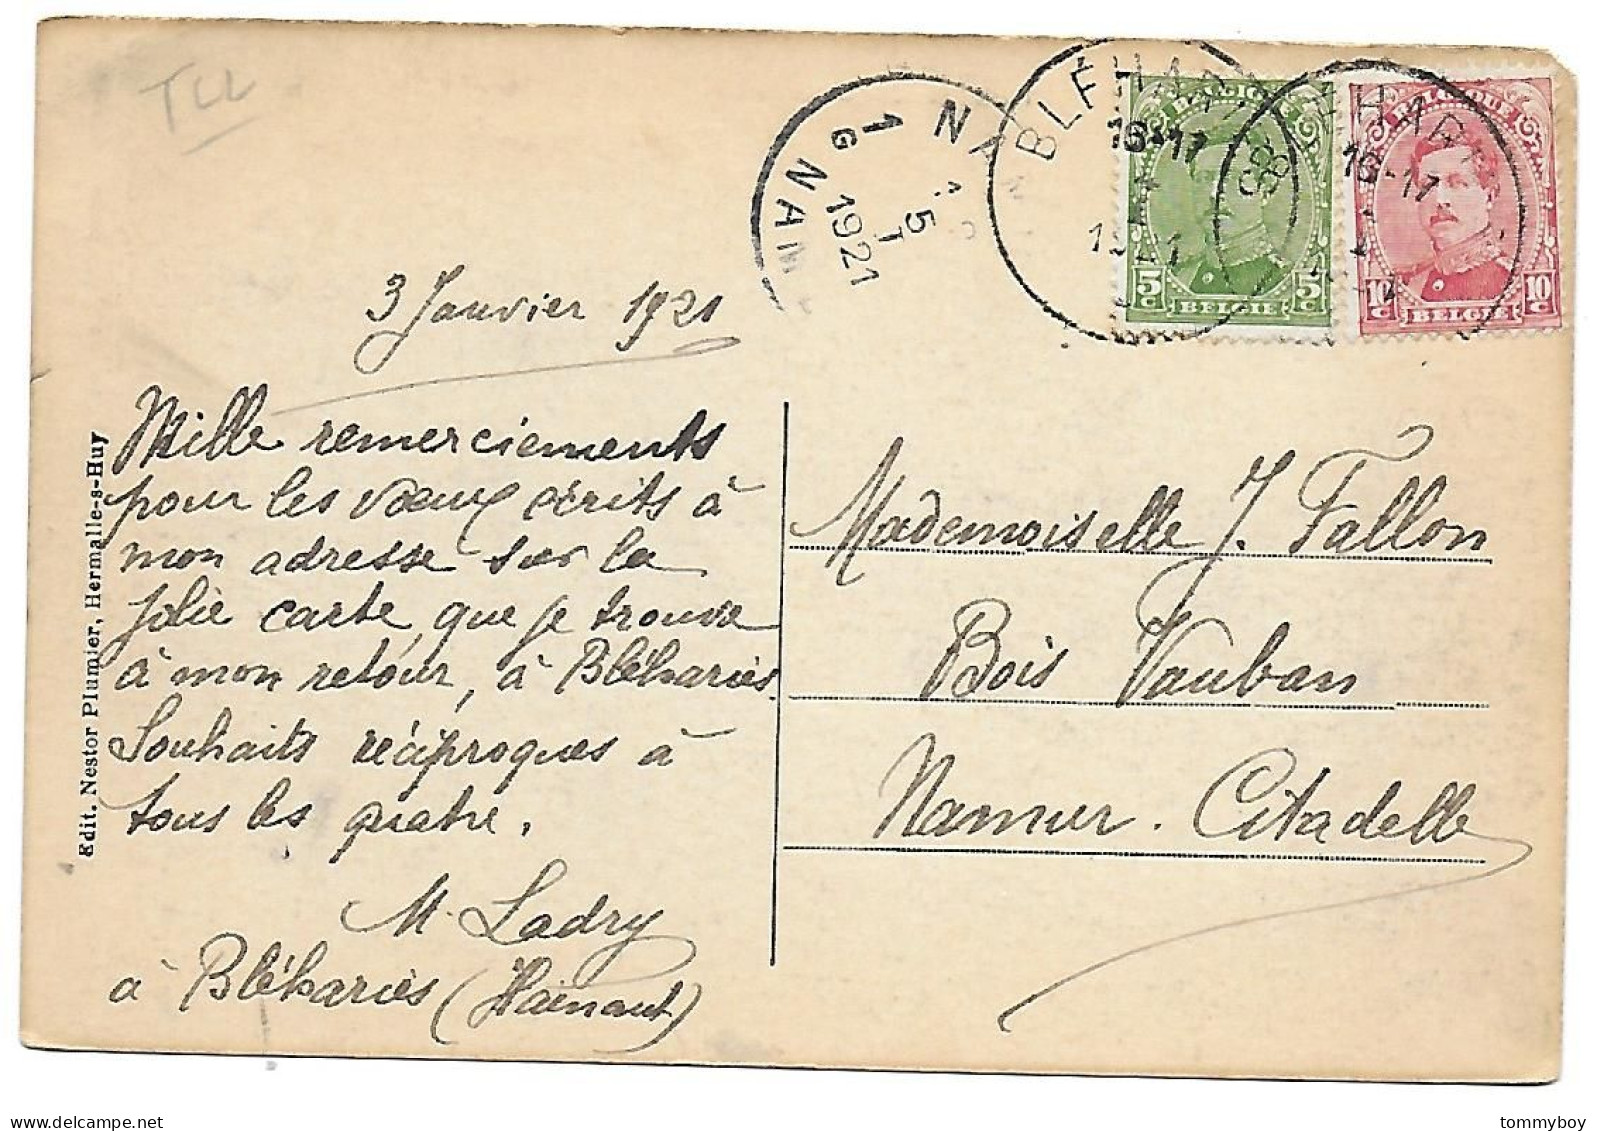 TLL
BLÉHARIES
16-17
NAMUR
1 G NAM
5
I
1921
BELGIQUE
5 C
5 C
BELGIE
BELGIQUE
10 C
10 C
BELGIE
16-17
3 Janvier 1921
Mille remerciements
pour les vœux écrits à
mon adresse sur la
jolie carte que je trouve
à mon retour, à Bléharies
Souhaits réciproques à
tous les quatre.
M. Ladry
à Bléharies (Hainaut)
Edit. Nestor Plumier, Hermalle-s-Huy
Mademoiselle J. Fallon
Bois Vauban
Namur. Citadelle
tommyboy